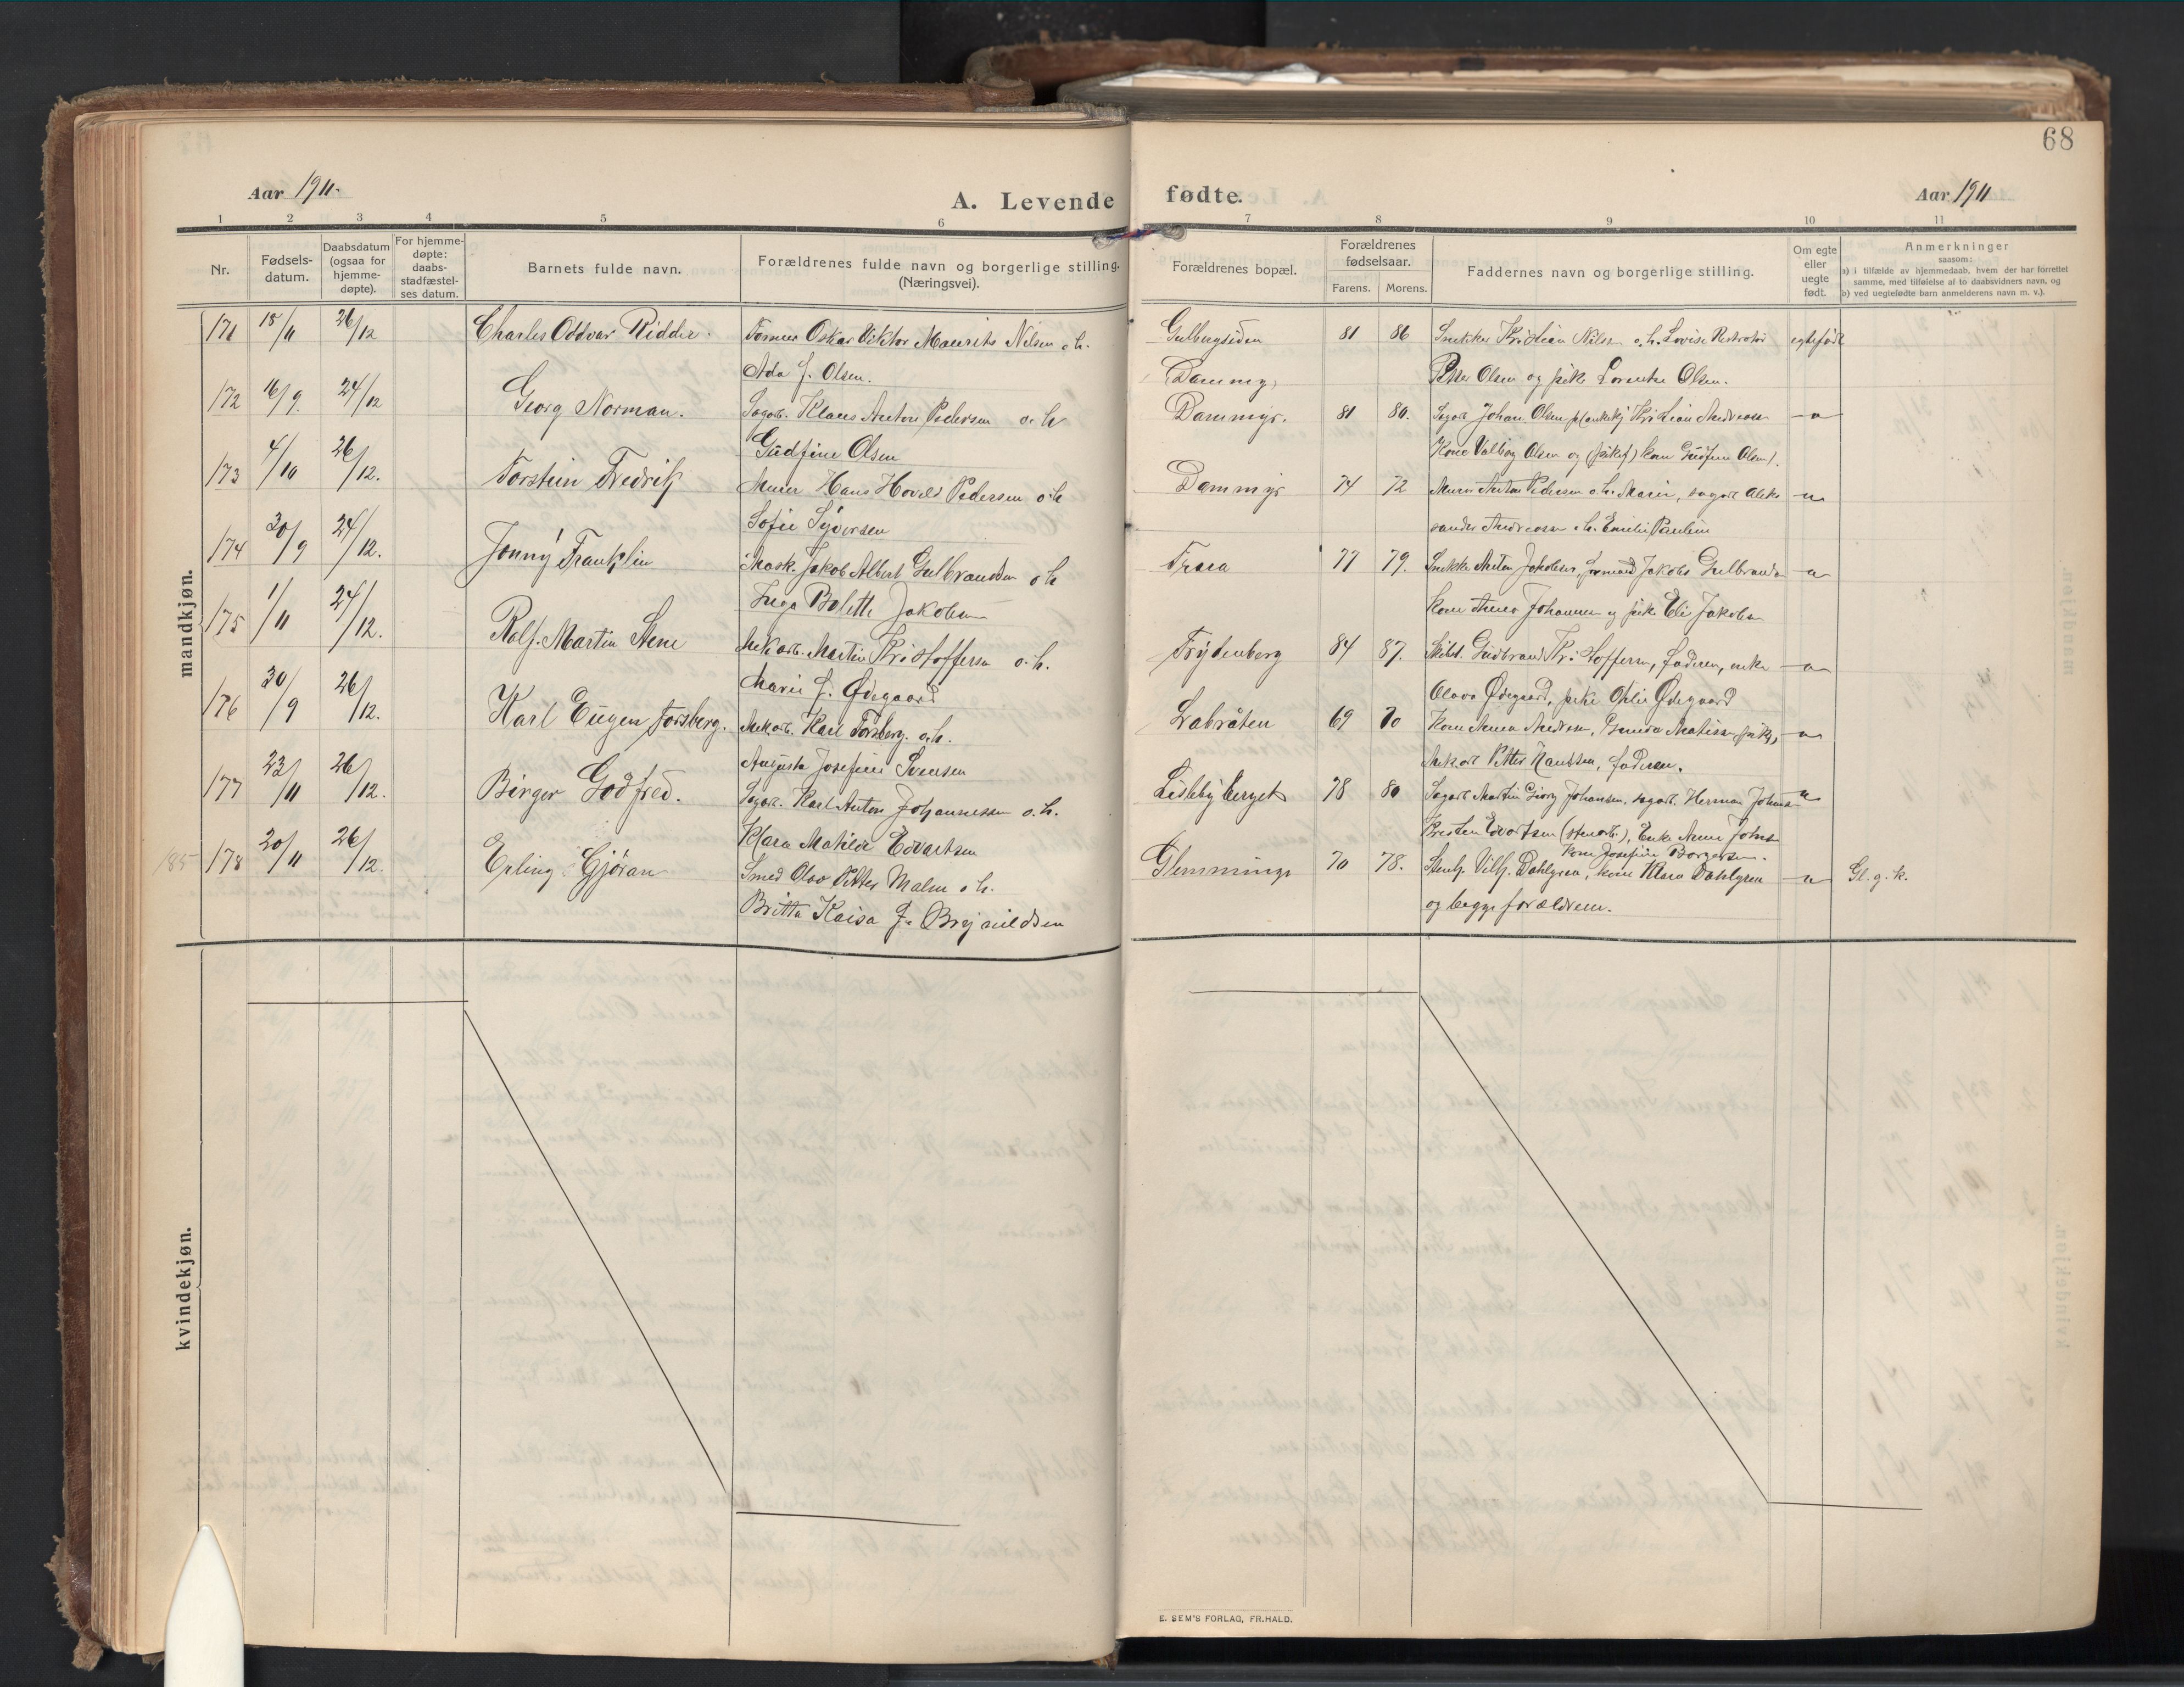 68
Aar 1911.
A. Levende
fødte.
Aar 1911
1 2 3 4 5 6
7 8 9 10 11
Nr.
Fødsels-
datum.
Daabsdatum
(ogsaa for
hjemme-
døpte).
For hjemme-
døpte:
daabs-
stadfæstel-
ses datum.
Barnets fulde navn.
Forældrenes fulde navn og borgerlige stilling.
(Næringsvei).
Forældrenes bopæl.
Forældrenes
fødselsaar.
Farens. Morens.
Faddernes navn og borgerlige stilling.
Om egte
eller
uegte
født.
Anmerkninger
saasom:
a) i tilfælde av hjemmedaab, hvem der har forrettet
samme, med tilføielse af to daabsvidners navn, og
b) ved uegtefødte barn anmelderens navn m. v.).
mandkjøn.
171 15/11 26/12 Charles Oddvar Ridder. Former Oskar Viktor Maurits Nilsen o.h.
Ada J. Olsen.
172 16/9. 24/12 Georg Norman. Sagarb. Klaus Anton Pedersen o.h
Gudfine Olsen
173 4/10 26/12. Torstein Fredrik Murer Hans Hovels Pedersen o.h
Sofie Syversen
174 30/9 24/12. Jonny Franklin Mask. Jakob Albert Gulbrandsen o.h
Inga Bolette Jakobsen
175 1/11 24/12. Rolf Martin Stene Mek.arb. Martin Kristoffersen o.h.
Marie J. Ødegaard
176 30/9 26/12. Karl Eugen Forsberg. Mek.arb. Karl Forsberg. o.h.
Augusta Josefine Svensen
177 23/11 26/12. Birger Godfred. Sagarb. Karl Anton Johannessen o.h.
Klara Matilde Edvartsen
185 178 20/11 26/12. Erling Gjöran Smed Olov Petter Malm o.h.
Britta Kaisa J.
Gulbergsiden 81 86 Snekker Kristian Nilsen o.h. Lovise egtefødt
Dammyr
Petter Olsen og pike Lorentse Olsen.
Dammyr. 81 80. Sagarb Johan Olsen, Kristian Andreassen —"—
Kone Valborg Olsen og kone Gudfine Olsen).
Dammyr 74 72 Murer Anton Pedersen o.h. Marie, sagarb Alek- —"—
sander Andreassen o.h. Emilie Pauline
Trara 77 79. Snekker Anton Jakobsen, Jakob Gulbrandsen —"—
kone Anna Johannesen og pike Eli Jakobsen
Frydenberg 84 87. Gudbrand Kristoffersen, faderen, enke —"—
Olava Ødegaard, pike Ødegaard
Labråten 69 70 Kone Anna Andersen, pike, —"—
Mekarb Petter Knudsen, faderen.
Lislebyberget 78 80 Sagarb Martin Georg Johansen, sagarb. Herman Johansen —"—
Kresten Edvartsen (stenarb.), Enke Anne Johansen
kone Josefine Borgersen.
Glemminge 70 78. Stenh. Vilh. Dahlgren, kone Klara Dahlgren —"— Gl. g. k.
og begge forældrene.
kvindekjøn.
E. SEM'S FORLAG, FR.HALD.